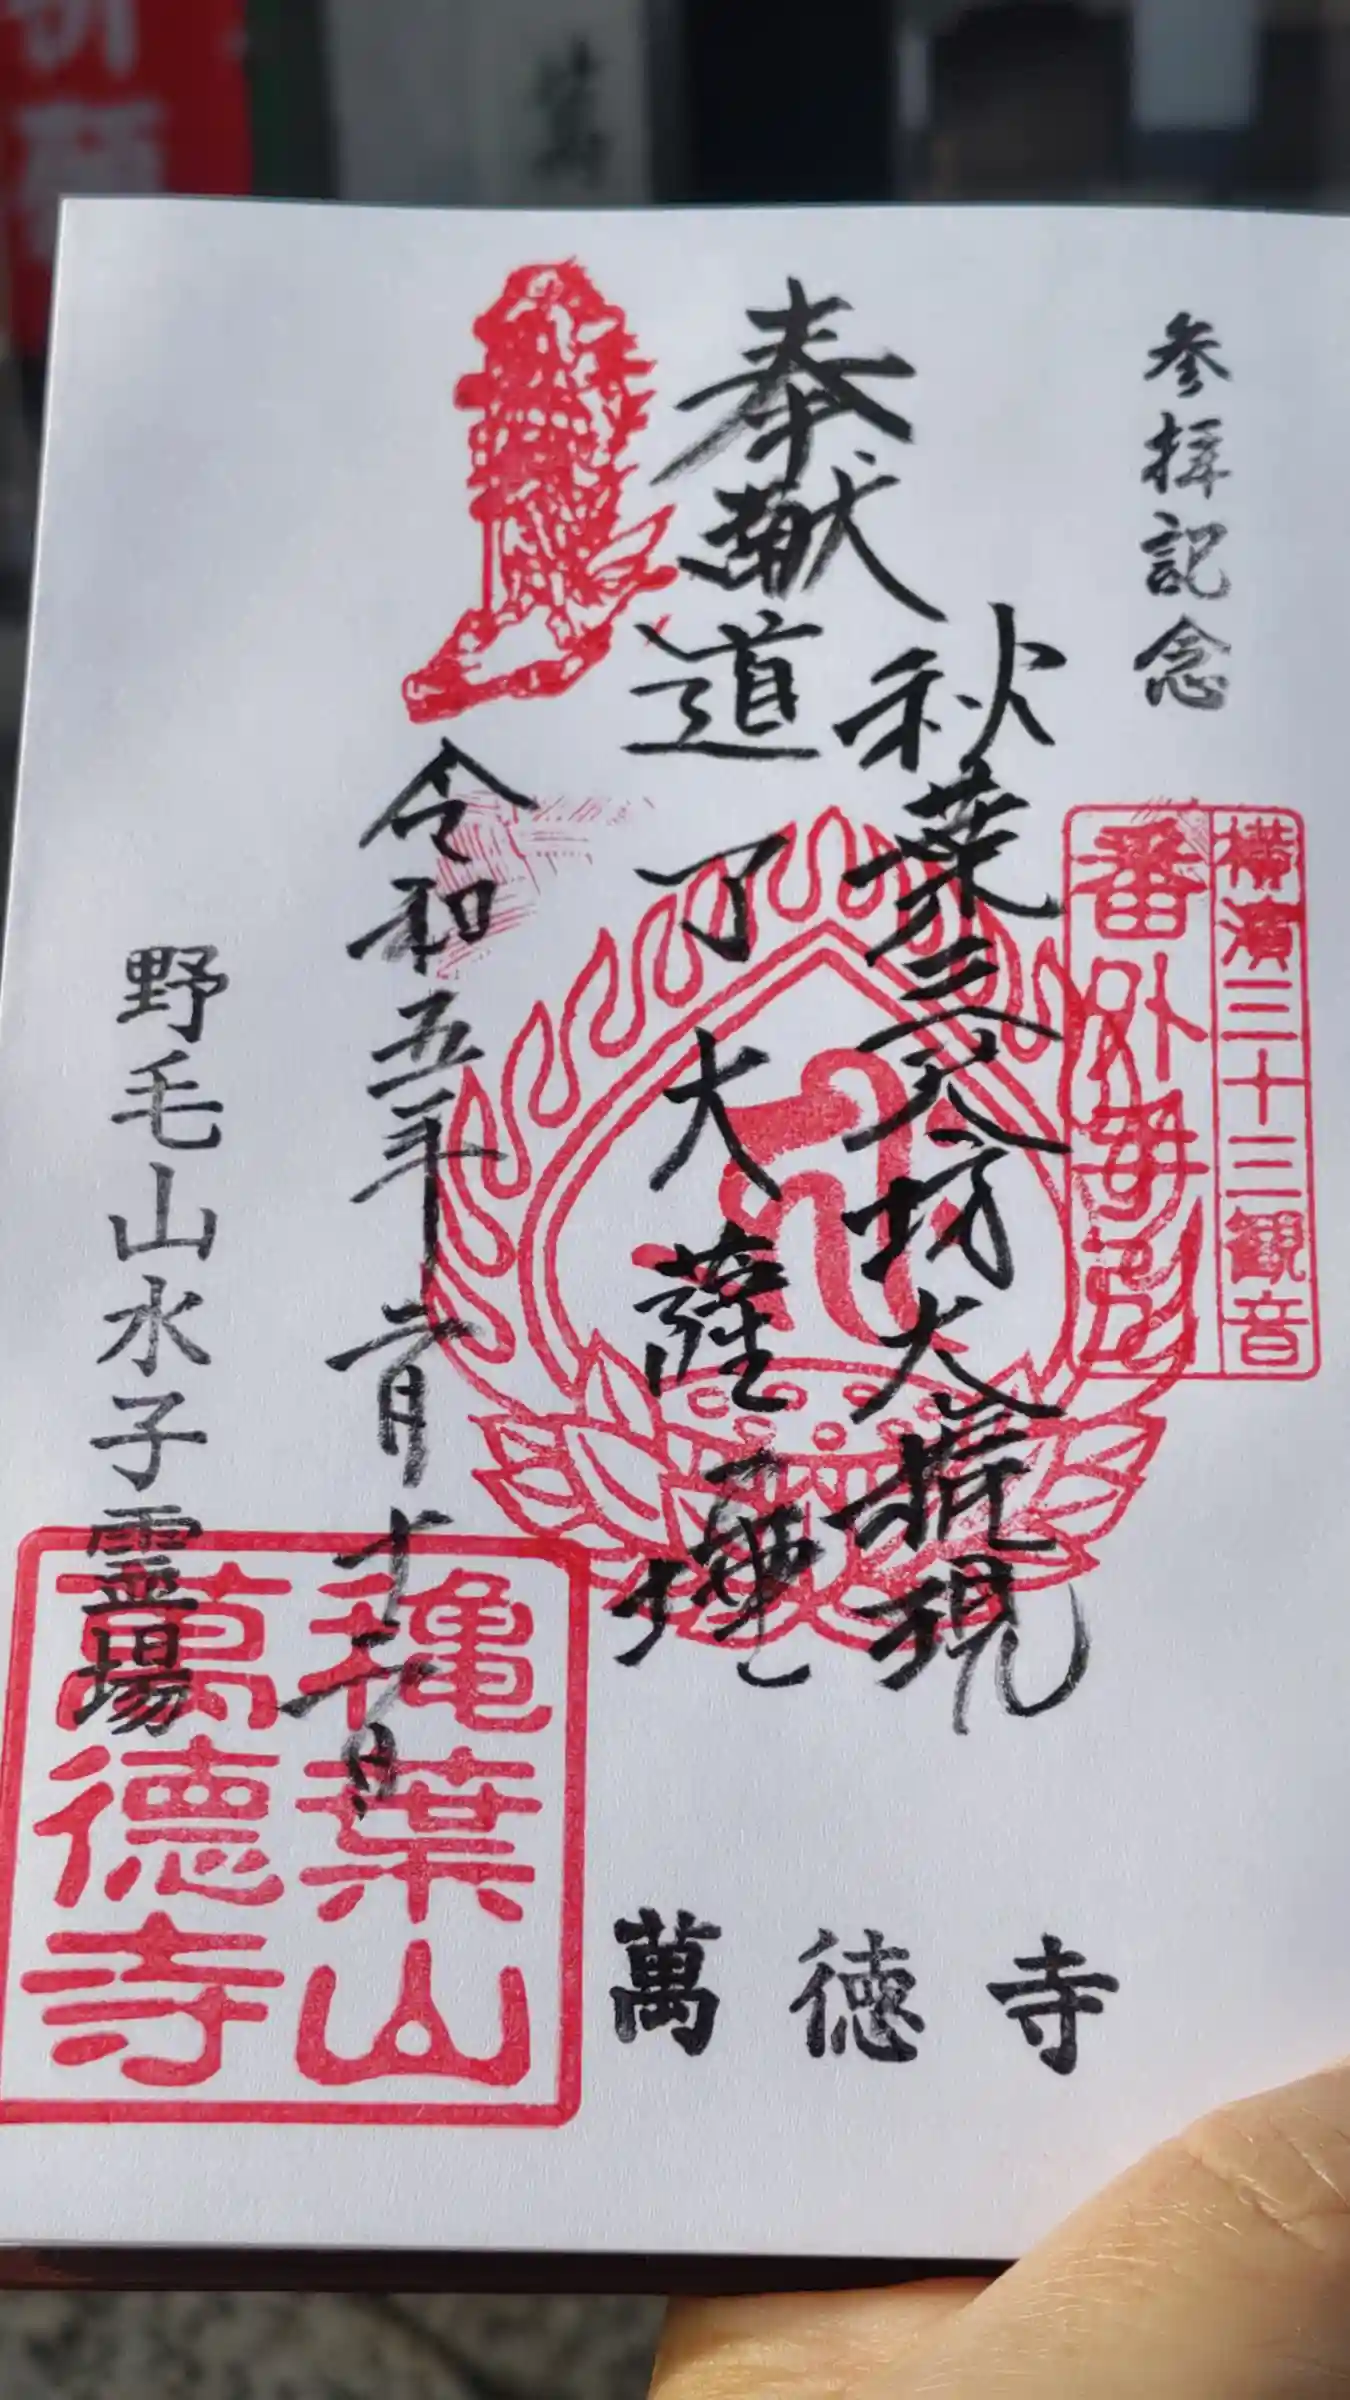 参拝記念
横濱三十三観音
番外壱
秋葉三尺坊大権現
奉献
道了大薩埵
令和五年二月十二日
野毛山水子霊場
亀葉山
萬德寺
萬徳寺